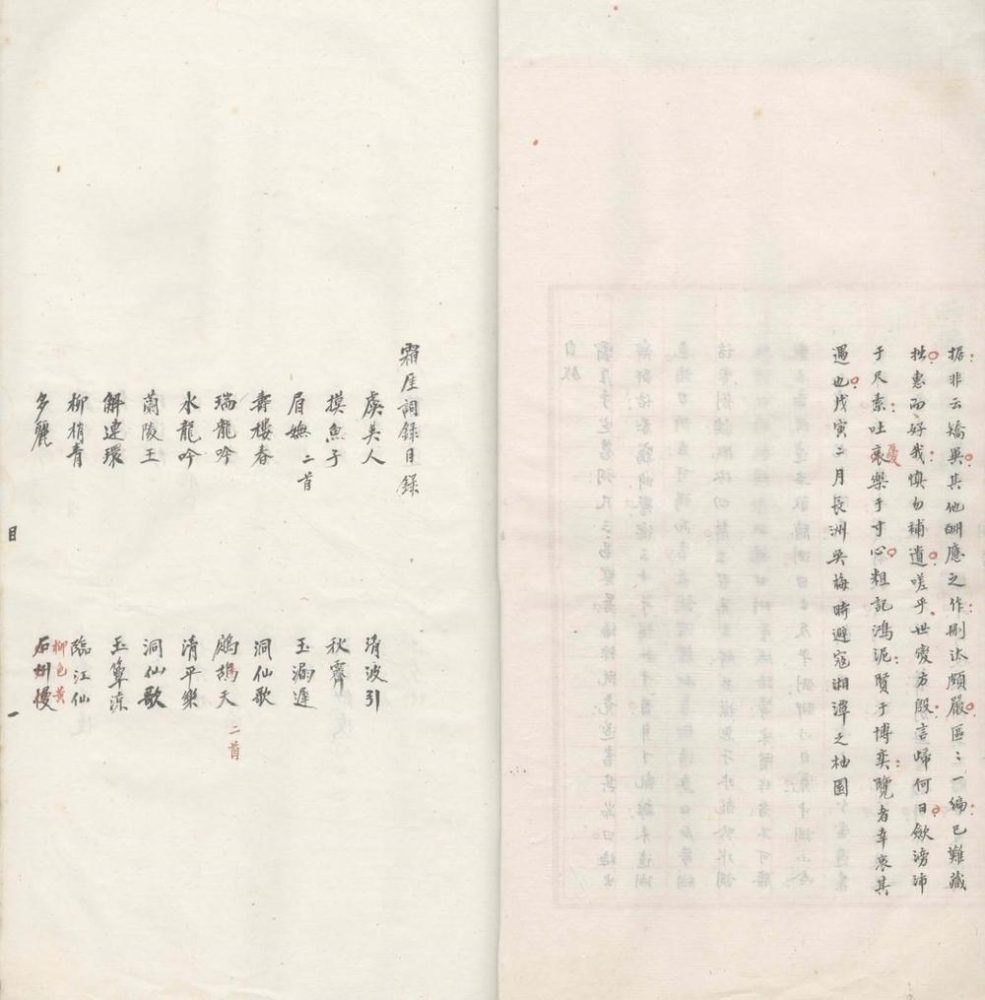 據非云矯異其他酬應之作刪汰頗嚴區〻一編已難藏
拙惠而好我慎勿補遺嗟乎世變方殷言歸何日斂滂沛
于尺素吐哀樂于寸心粗記鴻泥賢于博奕覽者幸哀其
憂
遇也戊寅二月長洲吳梅時避寇湘潭之柚園
霜厓詞錄目錄
虞美人
清波引
摸魚子
秋霽
眉嫵 二首
玉漏遲
壽樓春
洞仙歌
瑞龍吟
鷓鴣天 二首
水龍吟
清平樂
蘭陵王
洞仙歌
解連環
玉簟涼
柳梢青
臨江仙
多麗
石州慢
柳色黃
目
一